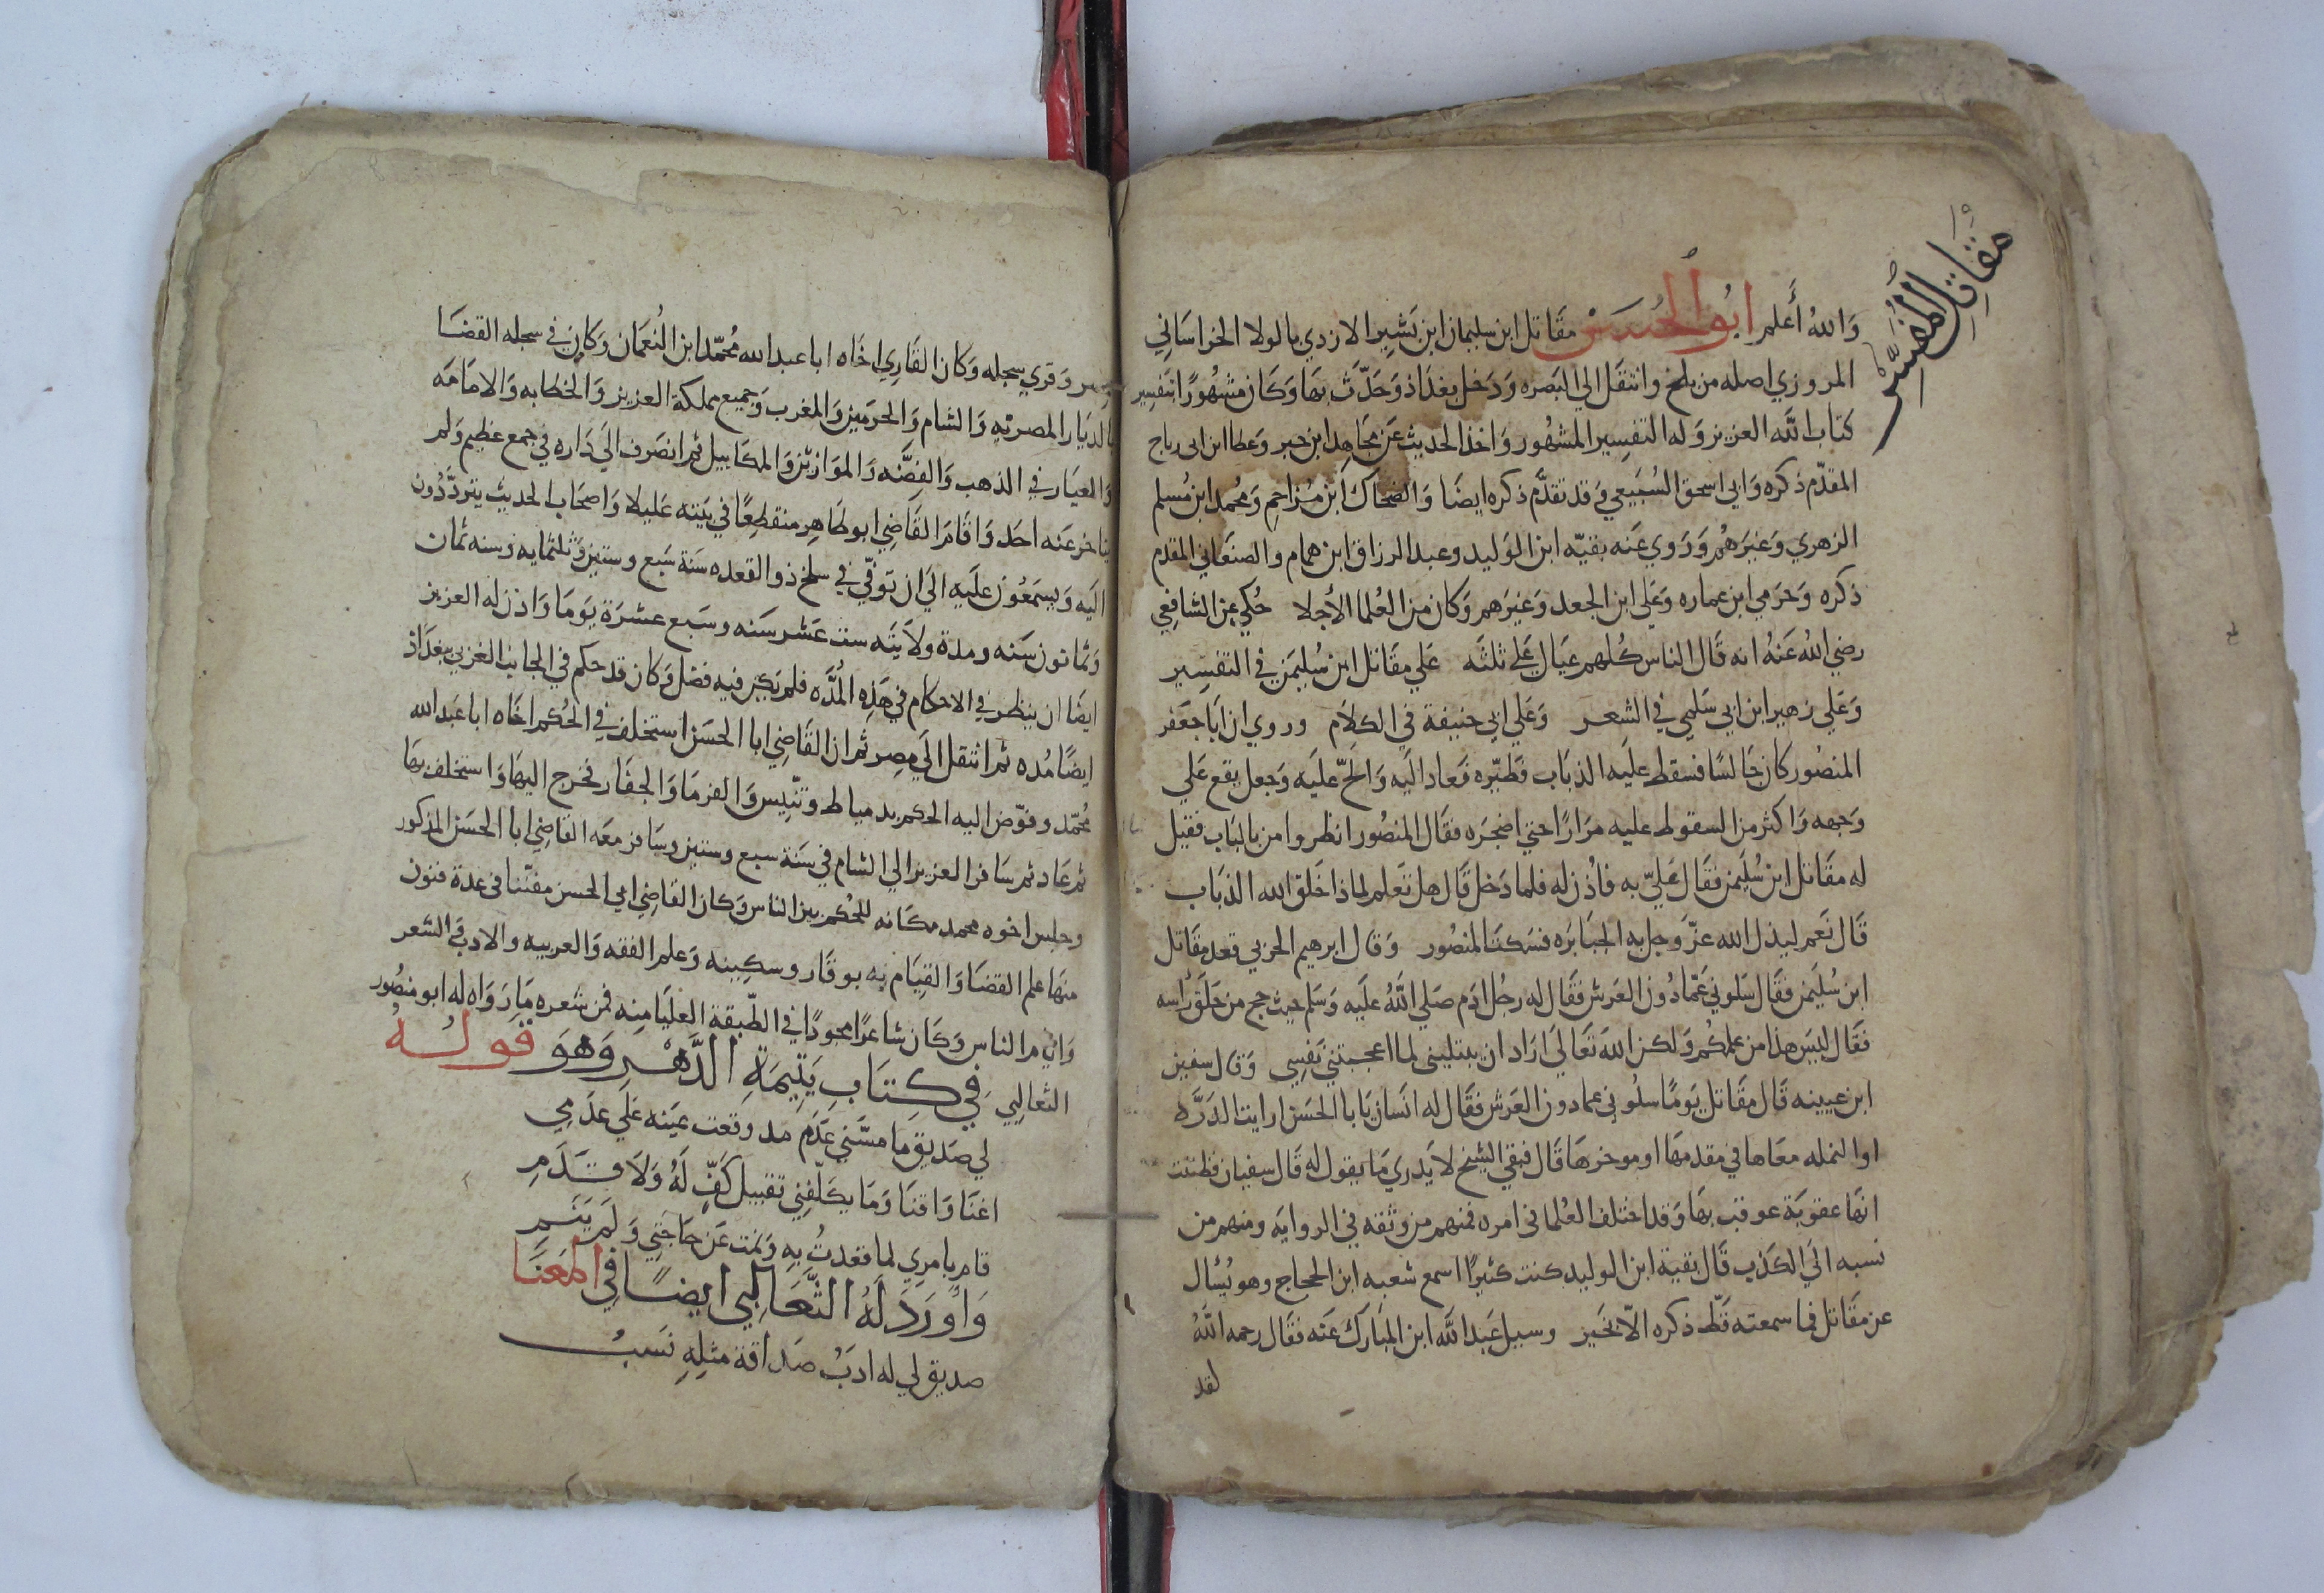 ١٥
مقاتل المفسر
والله أعلم ابو الحسن مقاتل ابن سليمان ابن بشير الازدي بالولا الخراساني
المروزي اصله من بلخ وانتقل الي البصره ودخل بغداذ وحدّث بها وكان مشهورًا بتفسير
كتاب الله العزيز وله التفسير المشهور واخذ الحديث عن مجاهد ابن جبر وعطا ابن ابي رباح
المقدّم ذكره وابي اسحق السُبَيعي وقد تقدَّم ذكره ايضا والضحاك ابن مُزاحم ومُحمد ابن مُسلم
الزهري وغيرهُم وروي عنه بقيّه ابن الوليد وعبد الرزاق ابن همام والصنعاني المقدم
ذكره وحرمي ابن عماره وعلي ابن الجعد وغيرهم وكان من العُلما الأجلا حُكي عن الشافعي
رضي اللهُ عنهُ انه قال الناس كُلهم عيال علي ثلثه علي مقاتل ابن سُليمن في التفسير
وعلي زهير ابن ابي سلمي في الشعر وعلي ابي حنيفة في الكلام وروي ان ابا جعفر
المنصُور كان جالسًا فسقط عليه الذباب فطيّره فعاد اليه والحّ عليه وجعل يقع علي
وجهه واكثر من السقوط عليه مرارًا حتي اضجره فقال المنصُور انظروا من بالباب فقيل
له مقاتل ابن سُليمن فقال عليّ به فاُذن له فلما دخل قال هل تعلم لماذا خلق الله الذباب
قال نعم ليذل الله عزّ وجل به الجبابره فسكت المنصُور وقال ابرهيم الحربي قعد مقاتل
ابن سُليمن فقال سلوني عمّا دُون العرش فقال له رجُل ادم صلي اللهُ عليه وسلم حيث حج من حلق راسه
فقال ليس هذا من علمكُم ولكن الله تعالي اراد ان يبتليني لما اعجبتني نفسي وقال سفين
ابن عيينه قال مقاتل يومًا سلُوني عما دون العرش فقال له انسان يابا الحسن ارايت الدرّه
او النمله معاها في مقدمها او موخرها قال فبقي الشيخ لا يدري ما يقول له قال سفيان فظننت
انها عقوبة عوقب بها وقد اختلف العُلما في امره فمنهم من وثقه في الروايه ومنهم من
نسبه الي الكذب قال بقية ابن الوليد كنت كثيرًا اسمع شعبه ابن الحجاج وهو يُسأل
عن مقاتل فما سمعته قطّ ذكره الّا بخير وسيل عبد الله ابن المبارك عنه فقال رحمه اللهُ
لقد
وقري سجله وكان القاري اخاه ابا عبد الله مُحمّد ابن النُعمان وكان في سجله القضا
بالديار المصريه والشام والحرمين والمغرب وجميع مملكة العزيز والخطابه والامامه
والعيار في الذهب والفضّه والموازين والمكاييل ثم انصرف الي داره في جمع عظيم ولم
يتاخر عنه احد واقام القاضي ابو طاهر منقطعًا في بيته عليلا واصحاب الحديث يتردّدُون
اليه ويسمعُون عليه الي ان توفّي في سلخ ذو القعده سنة سبع وستين وثلثمايه وسنه ثمان
وثمانون سنه ومدة ولايته ست عشر سنه وسبع عشرة يوما واذن له العزيز
ايضا ان ينظر في الاحكام في هذه المُدّه فلم يكن فيه فضل وكان قد حكم في الجانب الغربي ببغداذ
ايضًا مُده ثم انتقل الي مصر ثم ان القاضي ابا الحسن استخلف في الحُكم اخاه ابا عبد الله
مُحمّد وفوّض اليه الحكم بدمياط وتنّيس والفرما والجفار فخرج اليها واستخلف بها
ثم عاد ثم سافر العزيز الي الشام في سنة سبع وستين وسافر معه القاضي ابا الحسن المذكور
وجلس اخوه محمد مكانه للحُكم بين الناس وكان القاضي ابي الحسن مفنّنا في عدة فنون
منها علم القضا والقيام به بوقار وسكينه وعلم الفقه والعربيه والادب والشعر
وايام الناس وكان شاعرًا مجودًا في الطّبقة العليا منه فمن شعره ما رواه له ابو منصُور
الثعالبي في كتاب يتيمة الدّهر وهو قوله
لي صديق ما مسّني عدم مد وقعت عينه علي عدمي
اغنا واقنا وما يكلّفني تقبيل كفّ لهُ ولا قدم
قام بامري لما قعدتُ به ونمت عن حاجتي ولم ينم
وأورد لهُ الثّعالبي ايضًا في المعنا
صديق لي له ادبُ صداقة مثله نسبُ